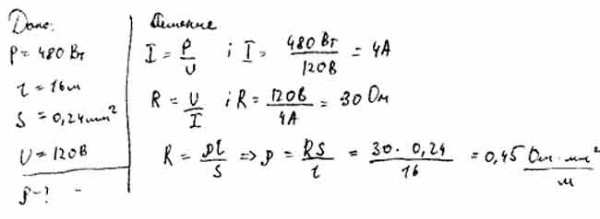 Дано:
P = 480 Вт
l = 16 м
S = 0,24 мм²
U = 120 В
ρ - ?
Решение
I = P/U ; I = 480 Вт/120 В = 4 А
R = U/I ; R = 120 В/4 А = 30 Ом
R = ρl/S => ρ = RS/l = 30 · 0,24/16 = 0,45 Ом · мм²/м